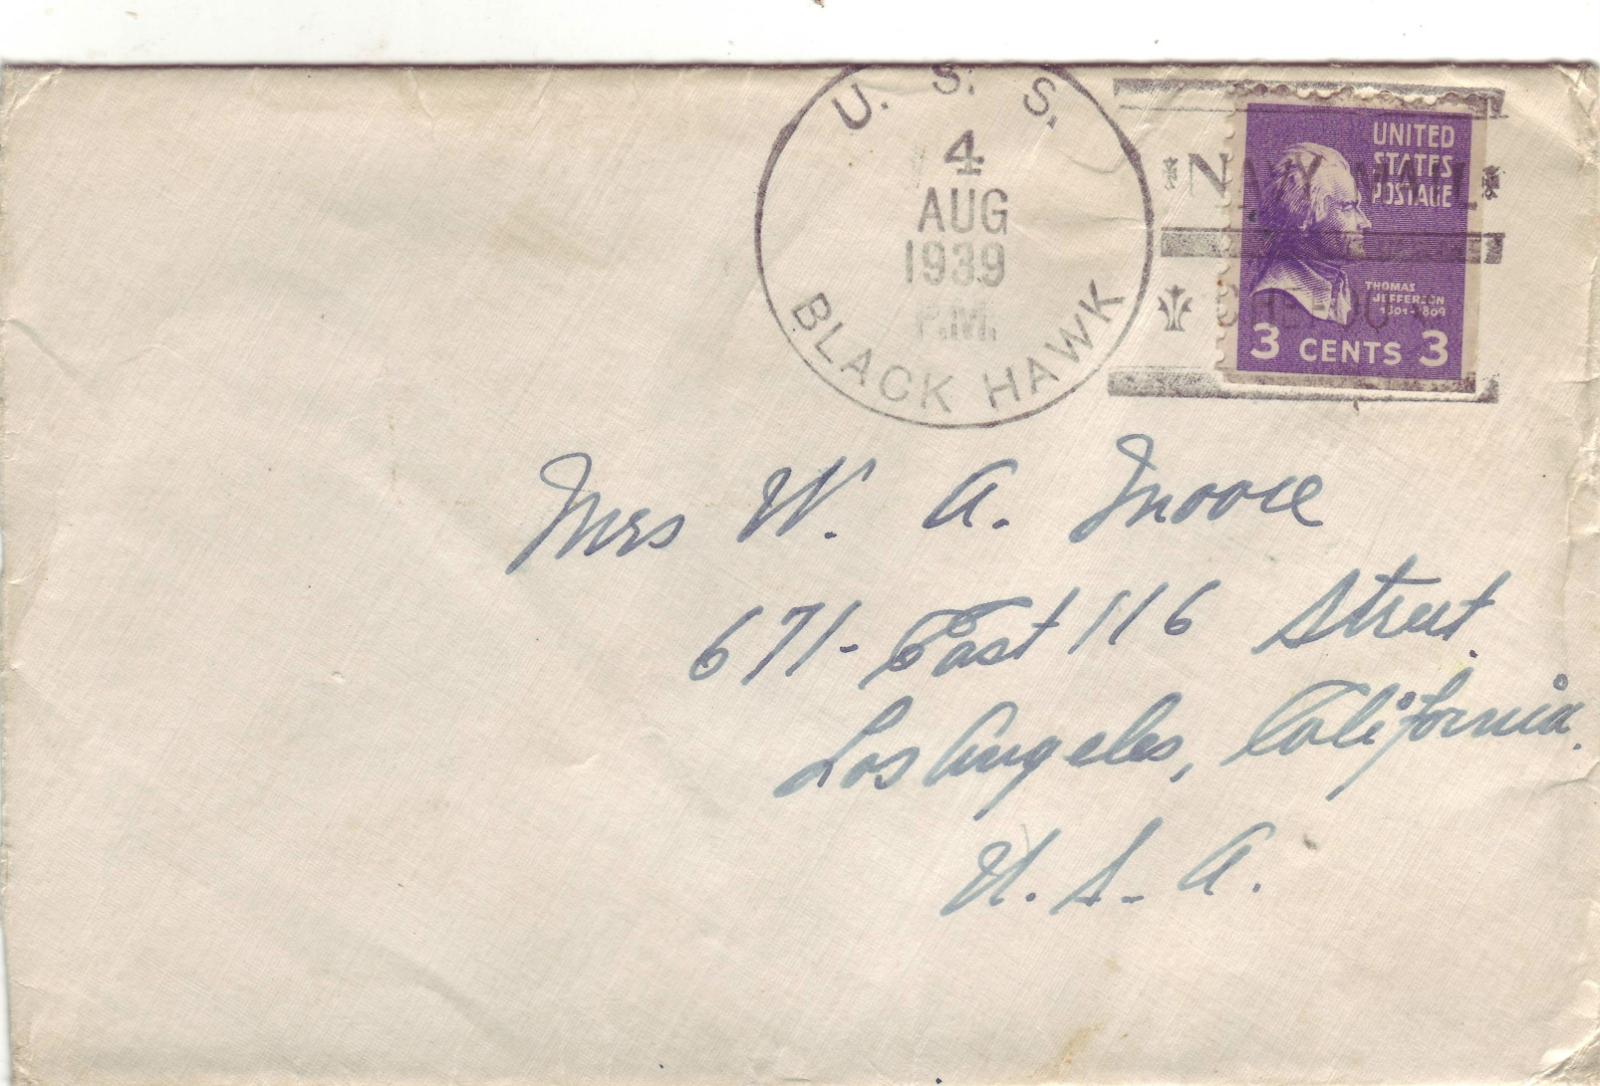 U. S. S.
4
AUG
1939
P.M.
BLACK HAWK
NAVY MAIL
UNITED
STATES
POSTAGE
THOMAS
JEFFERSON
1801-1809
3 CENTS 3
Mrs W. A. Moore
671- East 116 Street.
Los Angeles, California.
U. S. A.